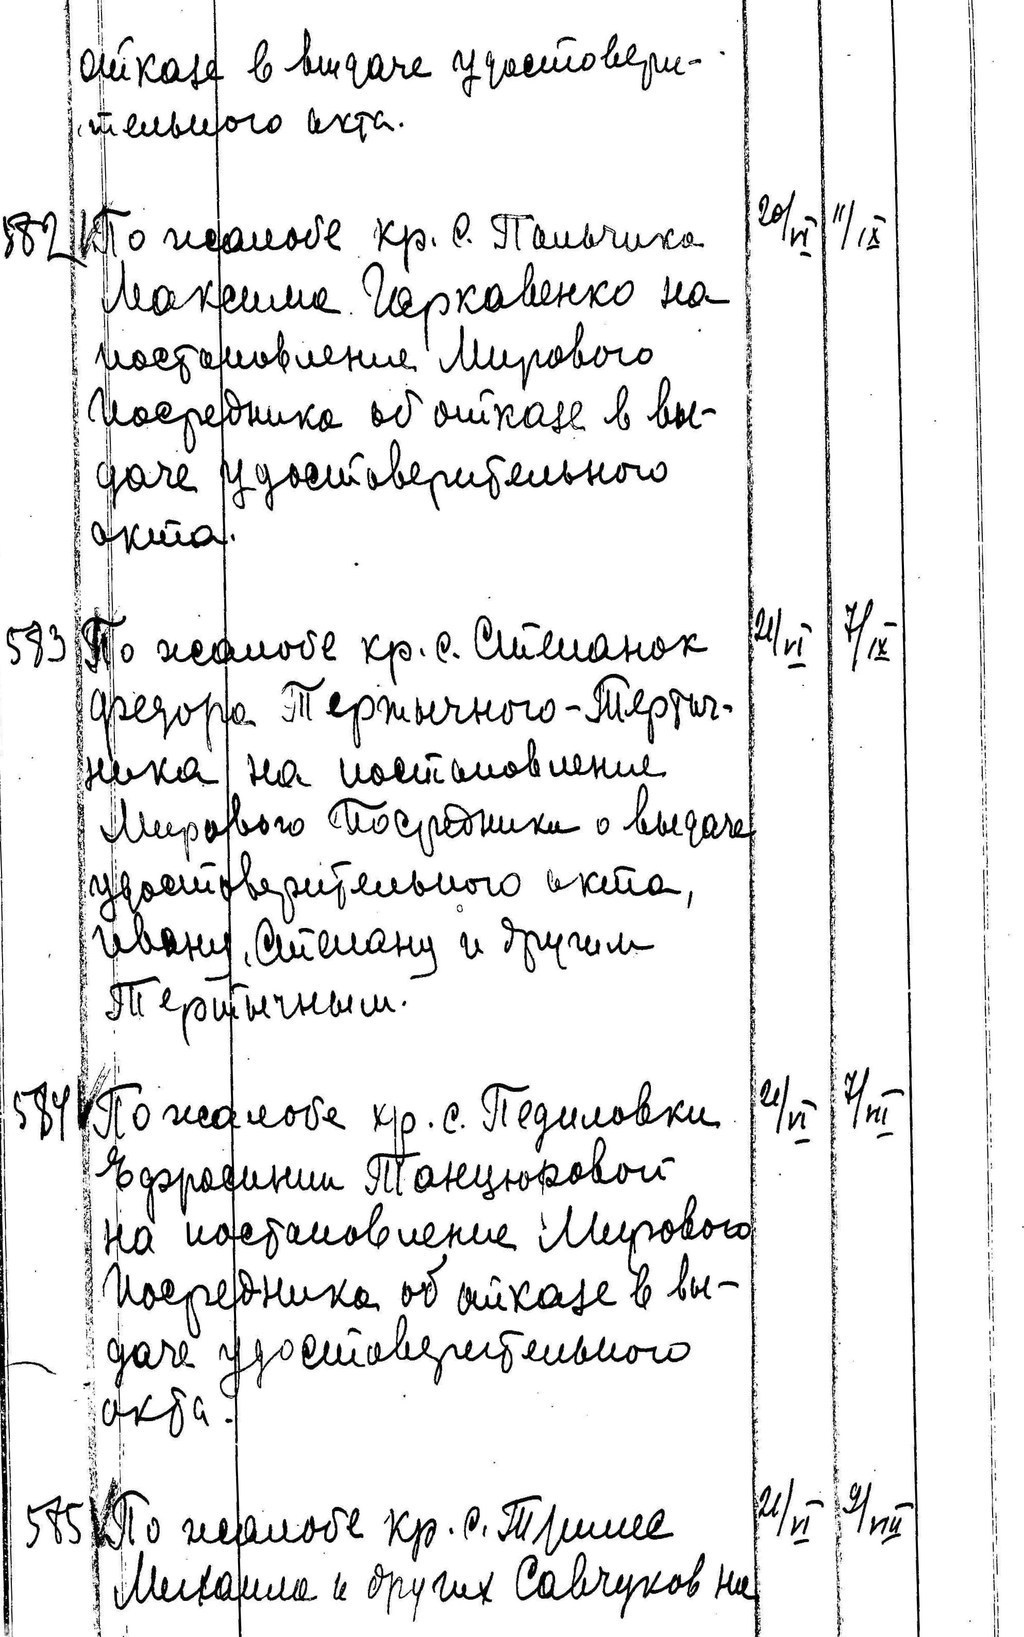 отказе в выдаче удостовери-
тельного акта.
582 По жалобе кр. с. Пальчика 20/VI 11/IX
Максима Гаркавенко на
постановление Мирового
Посредника об отказе в вы-
даче удостоверительного
акта.
583 По жалобе кр. с. Степанок 21/VI 7/IX
Федора Тертычного-Тертич-
ника на постановление
Мирового Посредника о выдаче
удостоверительного акта,
Ивану, Степану и другим
Тертычным.
584 По жалобе кр. с. Педиловки 21/VI 7/VII
Ефросинии Танцюровой
на постановление Мирового
Посредника об отказе в вы-
даче удостоверительного
акта.
585 По жалобе кр. с. 21/VI 9/VIII
Михаила и других Савчуков на